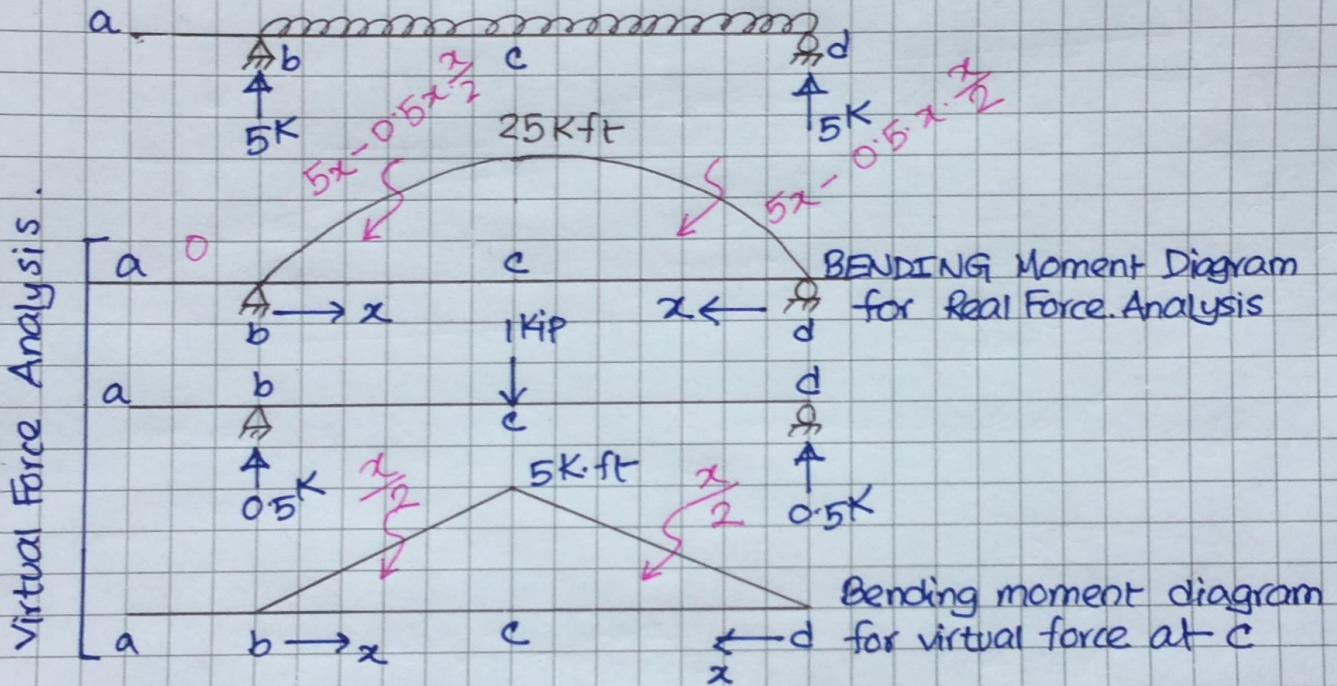 a
b
c
d
5K
25K·ft
5K
5x - 0.5x x/2
5x - 0.5·x·x/2
Virtual Force Analysis.
a
0
c
BENDING Moment Diagram
b
→ x
x ←
d
for Real Force Analysis
1Kip
a
b
d
c
0.5K
x/2
5K·ft
x/2
0.5K
Bending moment diagram
a
b → x
c
← d
x
for virtual force at C